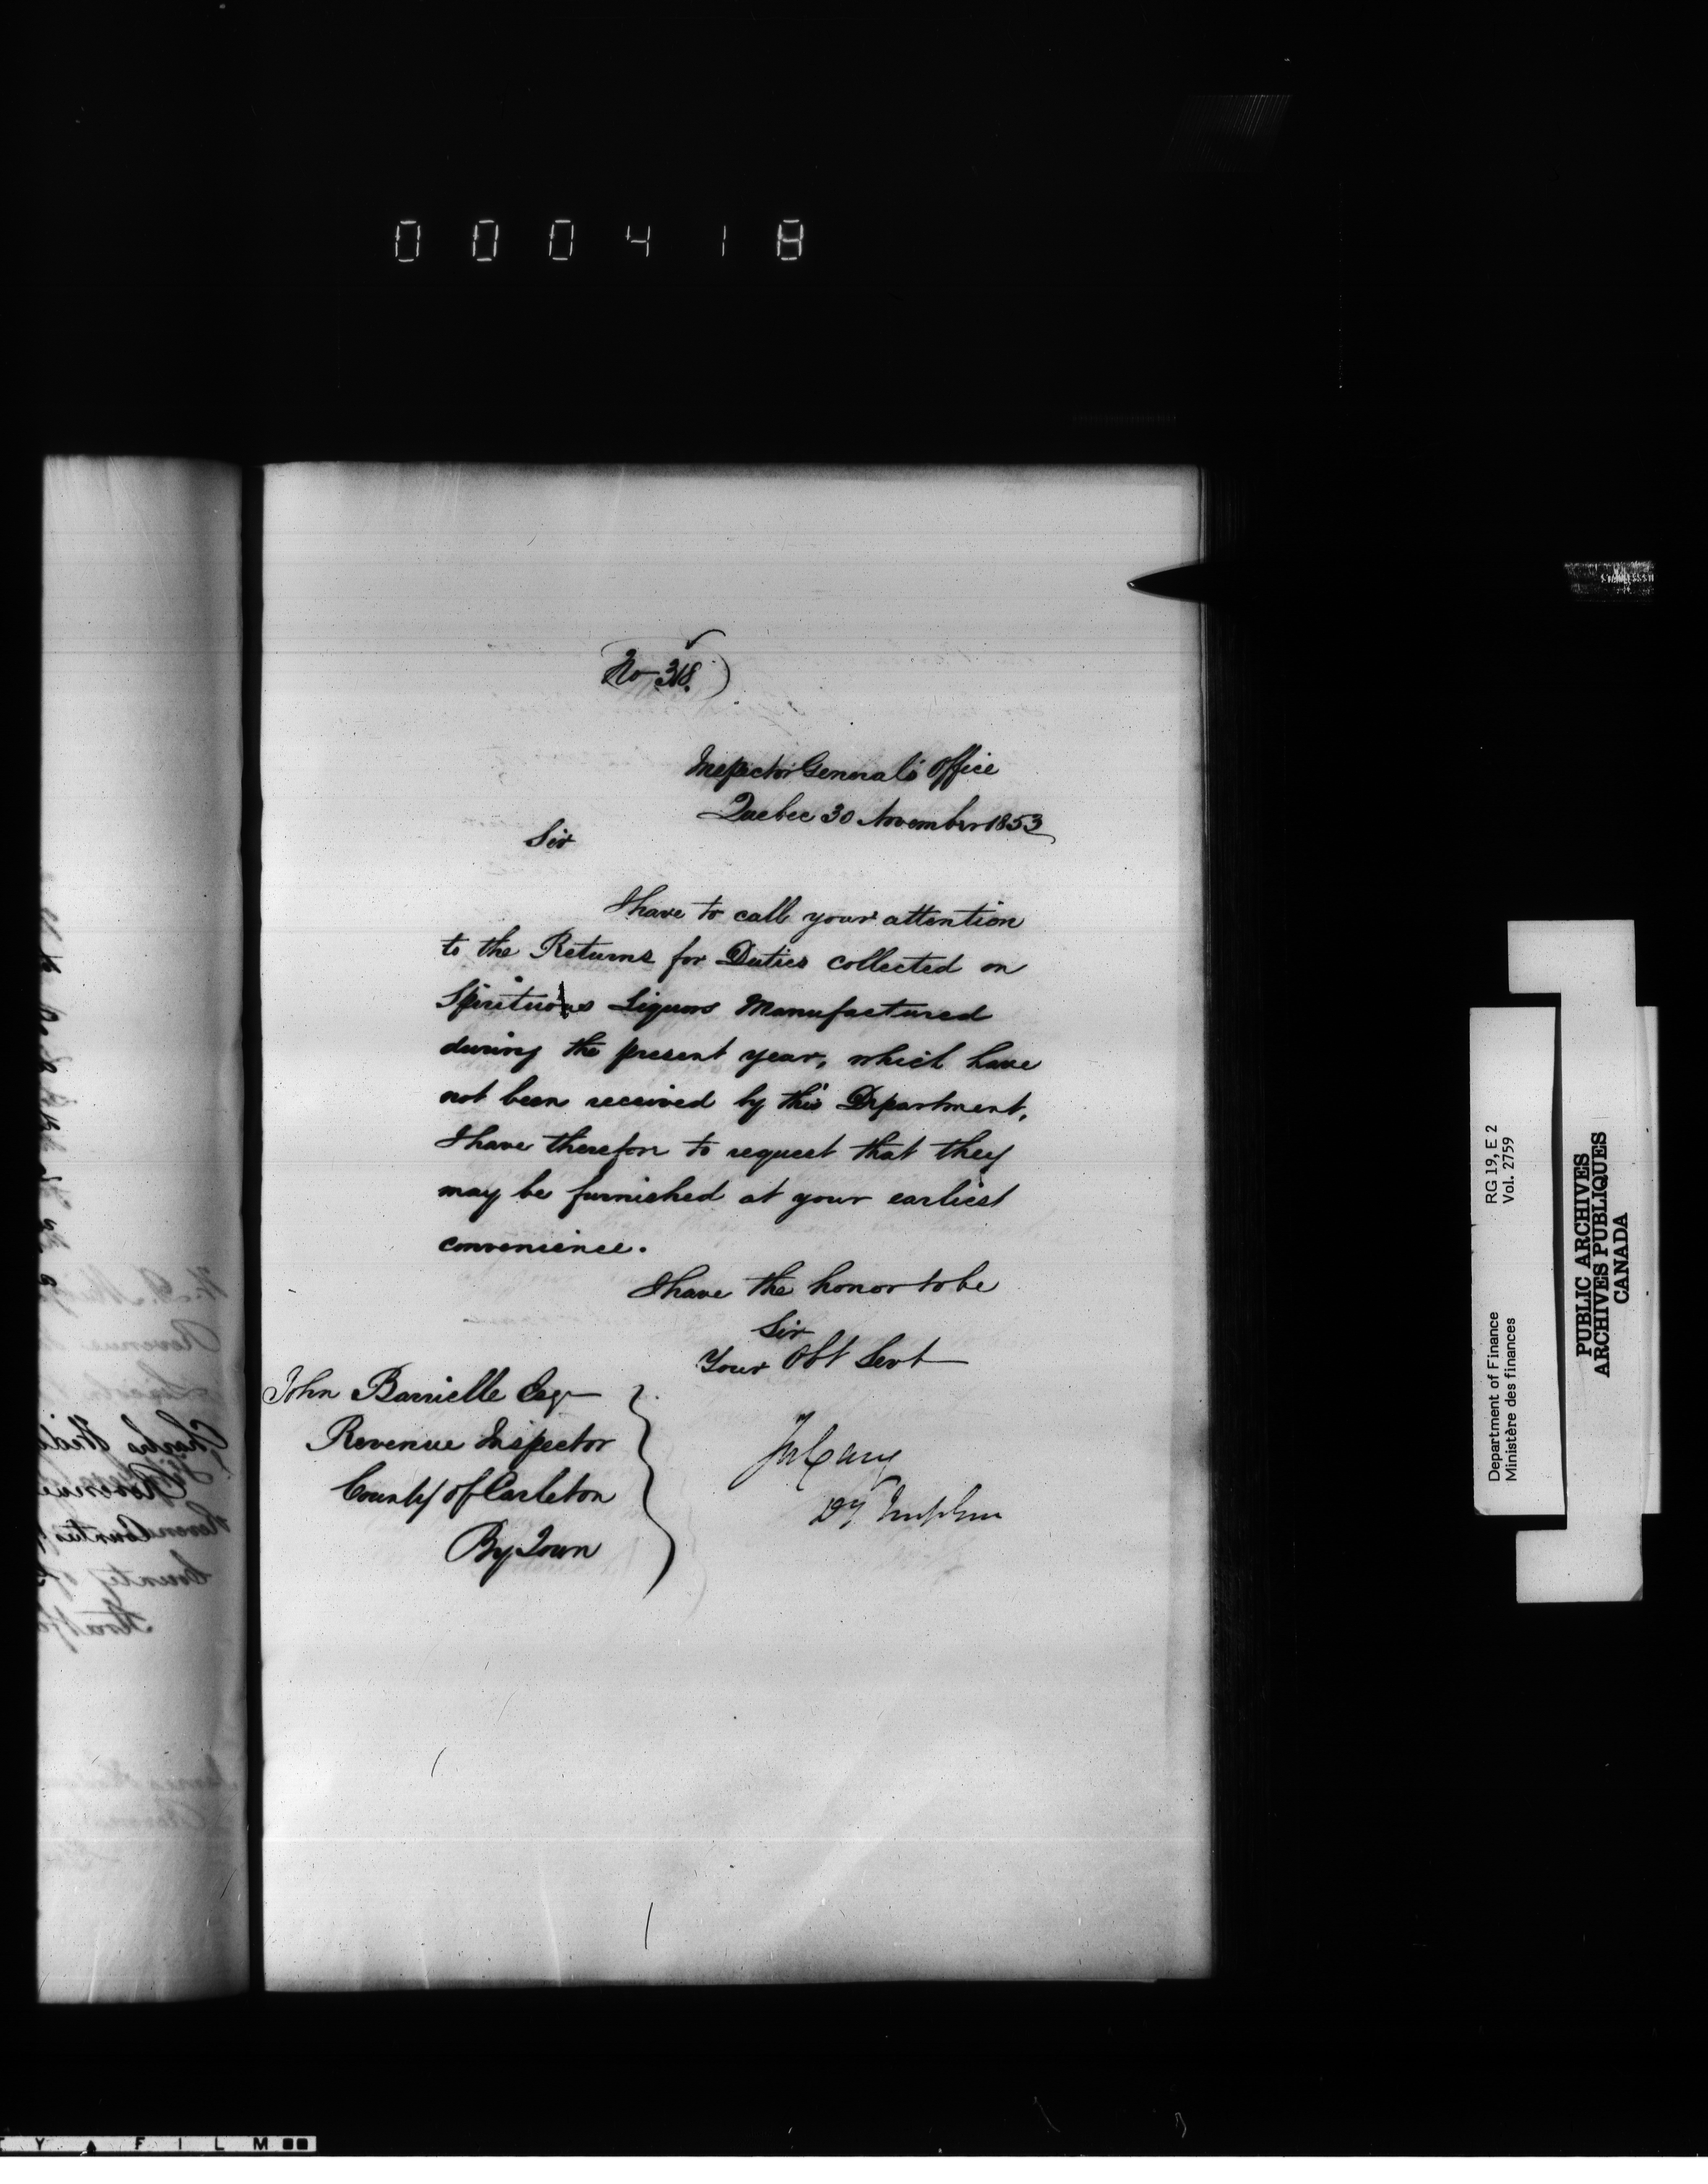 000418
No 318.
Inspector General's Office
Quebec 30 November 1853
Sir
I have to call your attention
to the Returns for Duties collected on
Spirituous Liquors Manufactured
during the present year, which have
not been received by this Department,
I have therefore to request that they
may be furnished at your earliest
convenience.
I have the honor to be
Sir
Your Obt Servt
John Barrielle Esqr
Revenue Inspector
County of Carleton
By Town
Jos Cary
Dy
RG 19, E 2
Vol. 2759
Department of Finance
Ministère des finances
PUBLIC ARCHIVES
ARCHIVES PUBLIQUES
CANADA
T Y ▲ F I L M